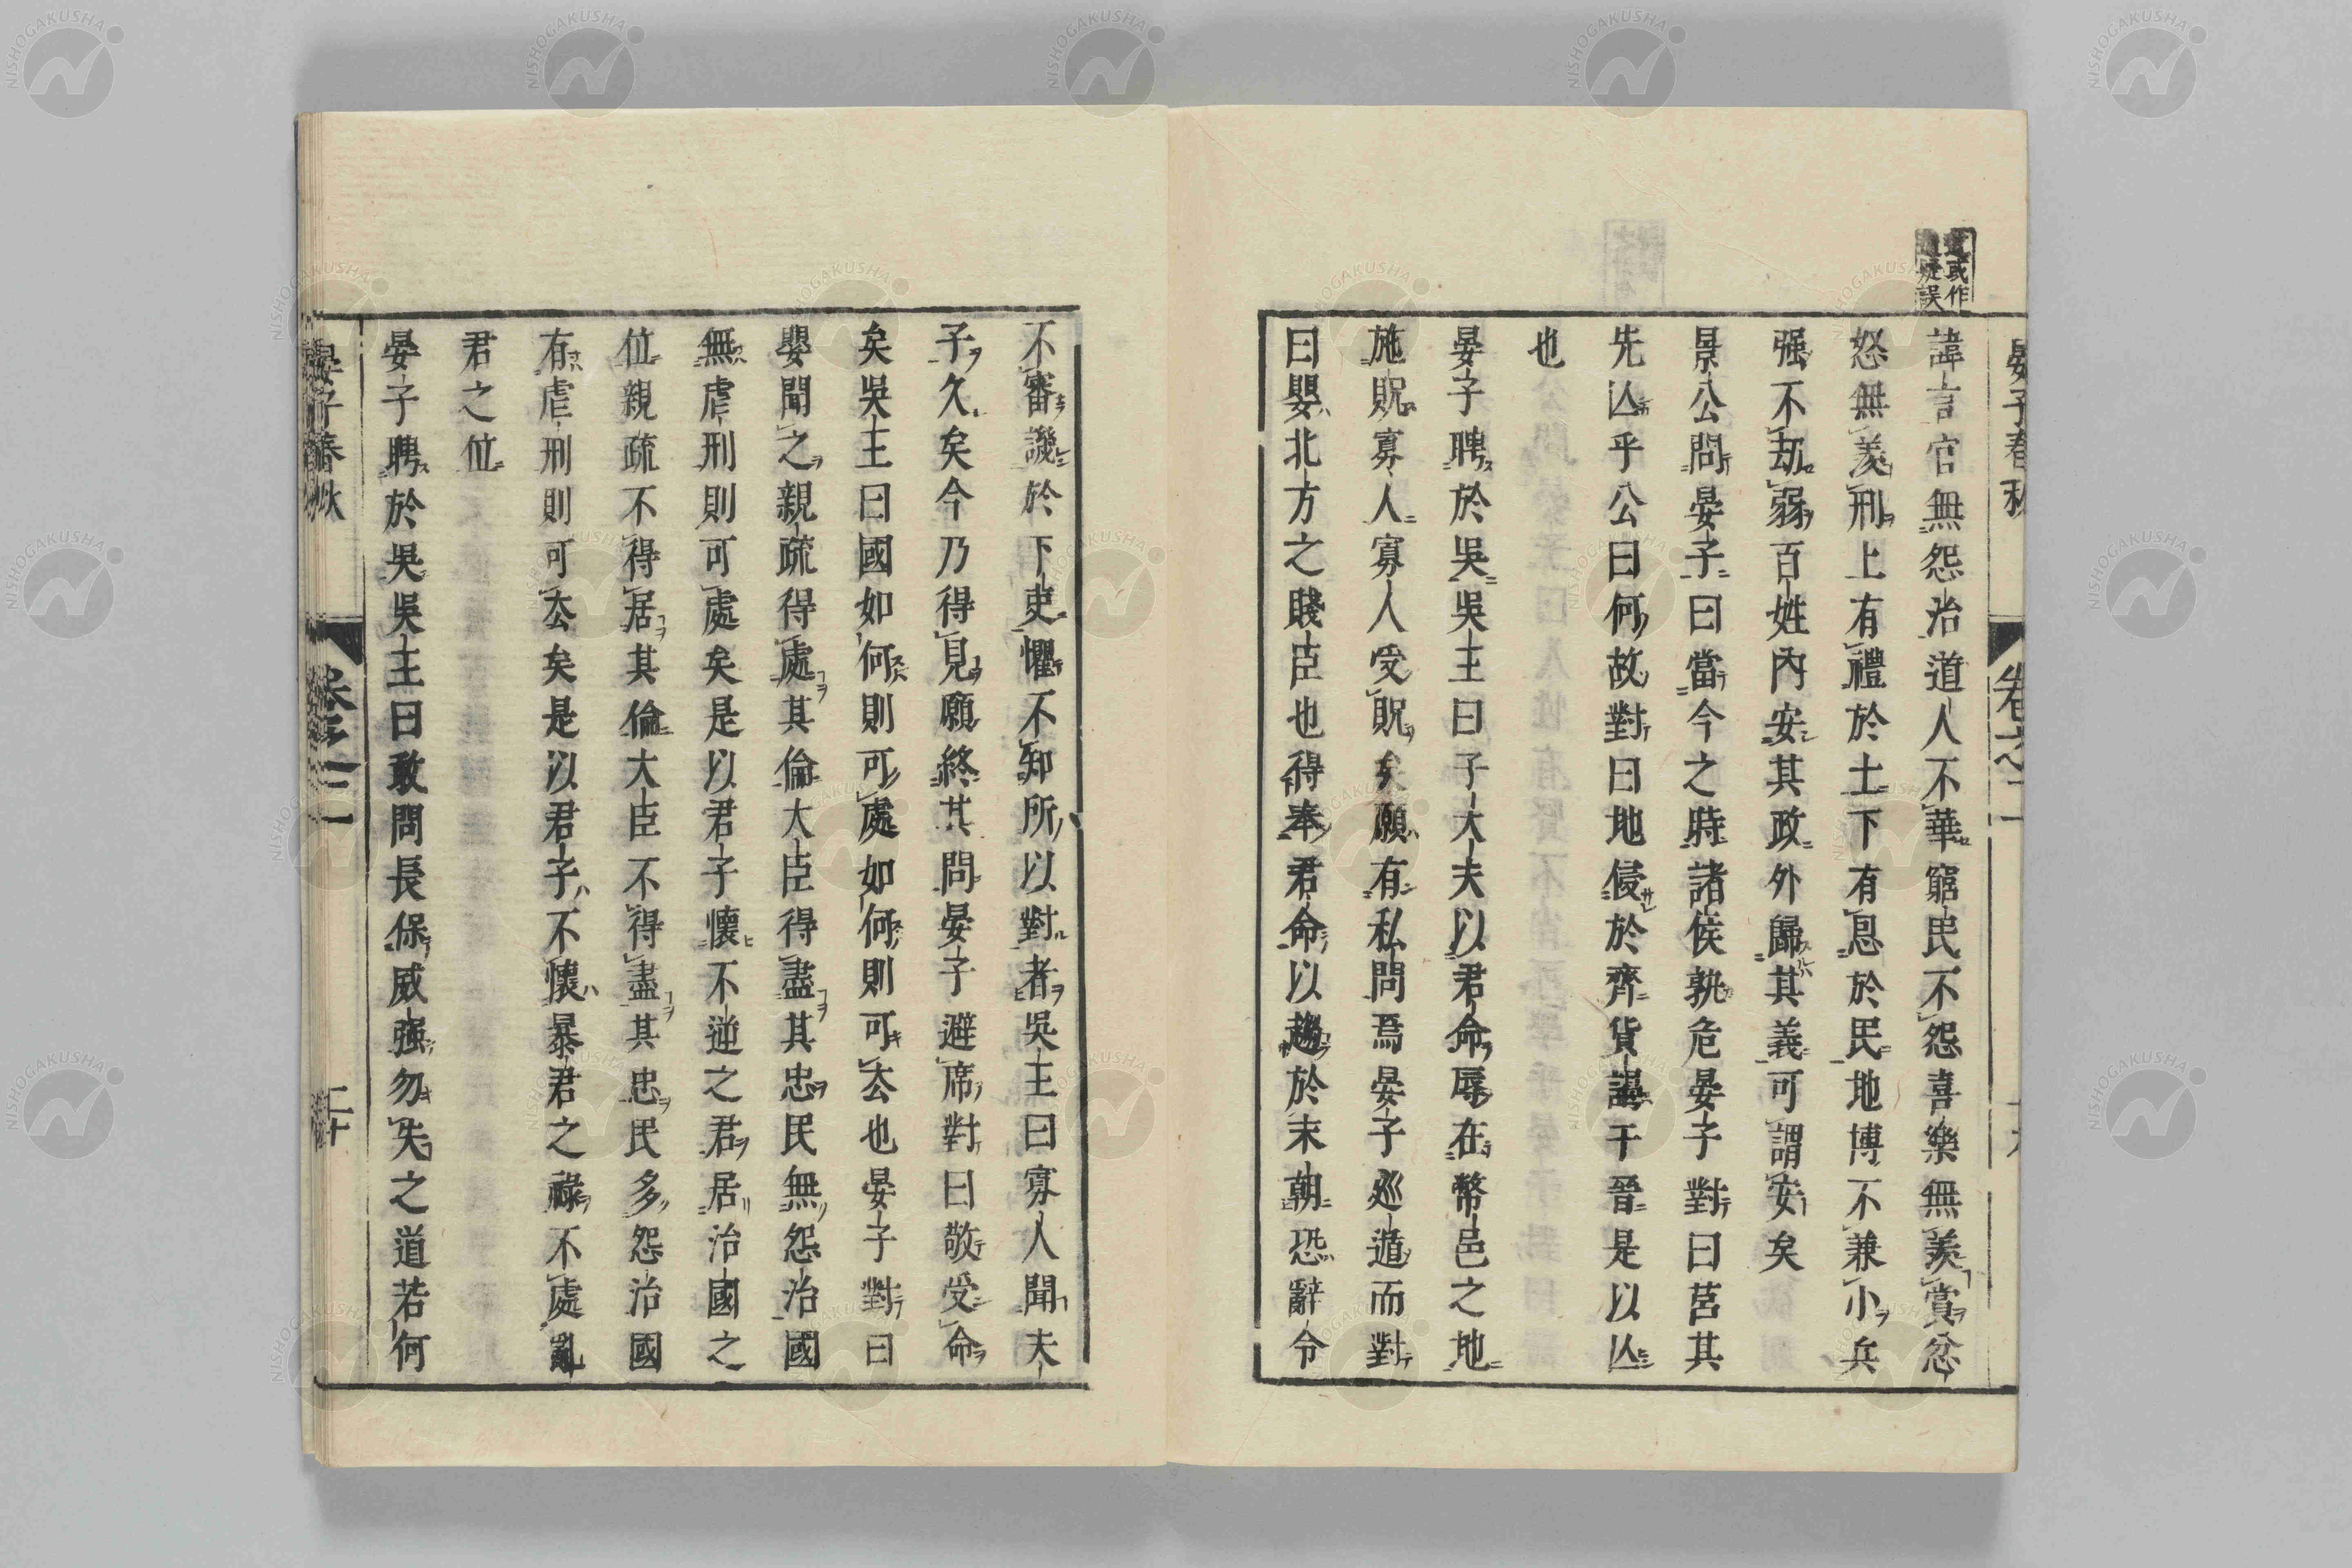 諱言官無怨治道人不華窮民不怨喜樂無羨賞忿
怒無羨刑上有禮於士下有恩於民地博不兼小兵
强不劫弱百姓內安其政外歸其義可謂安矣
景公問晏子曰當今之時諸侯孰危晏子對曰莒其
先亾乎公曰何故對曰地侵於齊貨謁于晉是以亾
也
晏子聘於吳吳王曰子大夫以君命辱在幣邑之地
施貺寡人寡人受貺矣願有私問焉晏子巡遁而對
曰嬰北方之賤臣也得奉君命以趨於末朝恐辭令
不審譏於下吏懼不知所以對者吳王曰寡人聞夫
子久矣今乃得見願終其問晏子避席對曰敬受命
矣吳王曰國如何則可處如何則可厺也晏子對曰
嬰聞之親疏得處其倫大臣得盡其忠民無怨治國
無虐刑則可處矣是以君子懷不逆之君居治國之
位親疏不得居其倫大臣不得盡其忠民多怨治國
有虐刑則可厺矣是以君子不懷暴君之祿不處亂
君之位
晏子聘於吳吳王曰敢問長保威强勿失之道若何
晏子春秋
卷之三
二十
晏子春秋
卷之三
NISHOGAKUSHA